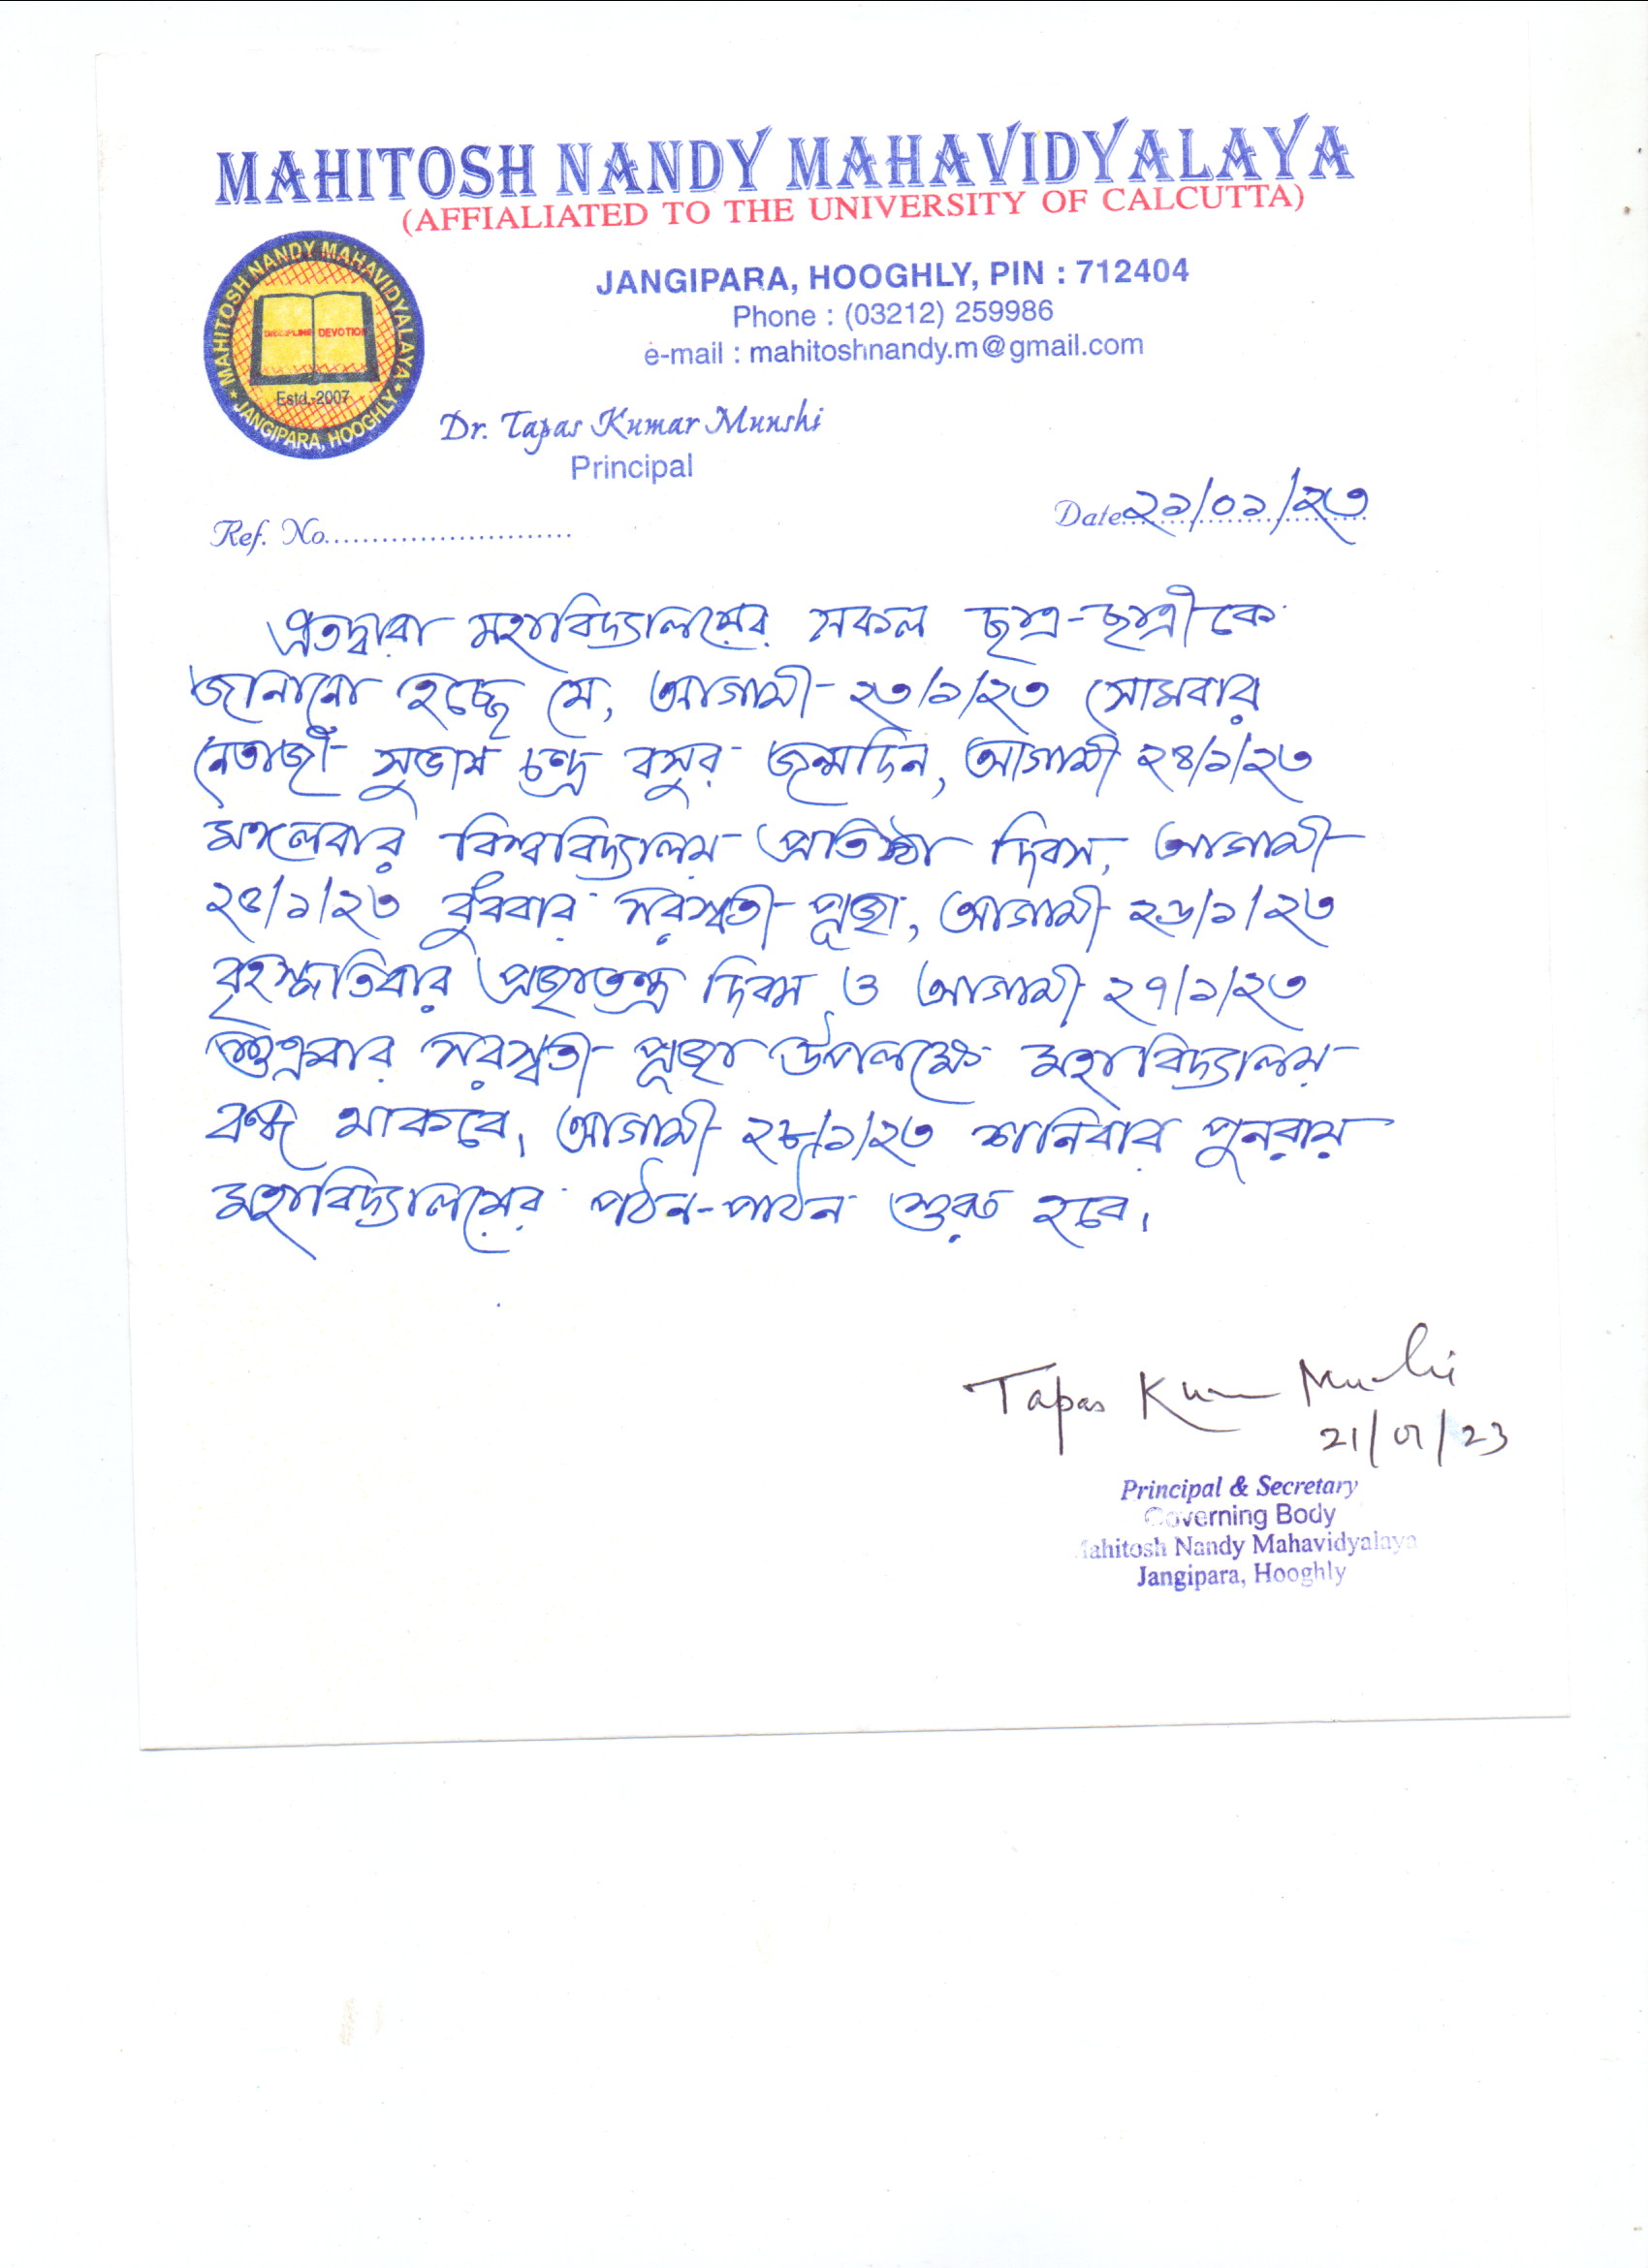 MAHITOSH NANDY MAHAVIDYALAYA
(AFFIALIATED TO THE UNIVERSITY OF CALCUTTA)
JANGIPARA, HOOGHLY, PIN : 712404
Phone : (03212) 259986
e-mail : mahitoshnandy.m@gmail.com
MAHITOSH NANDY MAHAVIDYALAYA
DISCIPLINE DEVOTION
Estd.-2007
* JANGIPARA, HOOGHLY *
Dr. Tapas Kumar Munshi
Principal
Ref. No..........................
Date..২১/০১/২৩
এতদ্বারা মহাবিদ্যালয়ের সকল ছাত্র-ছাত্রীকে
জানানো হচ্ছে যে, আগামী ২৩/১/২৩ সোমবার
নেতাজী সুভাষ চন্দ্র বসুর জন্মদিন, আগামী ২৪/১/২৩
মঙ্গলবার বিশ্ববিদ্যালয় প্রতিষ্ঠা দিবস, আগামী
২৫/১/২৩ বুধবার সরস্বতী পূজা, আগামী ২৬/১/২৩
বৃহস্পতিবার প্রজাতন্ত্র দিবস ও আগামী ২৭/১/২৩
শুক্রবার সরস্বতী পূজা উপলক্ষে মহাবিদ্যালয়
বন্ধ থাকবে। আগামী ২৮/১/২৩ শনিবার পুনরায়
মহাবিদ্যালয়ের পঠন-পাঠন শুরু হবে।
Tapas Kumar Munshi
21/01/23
Principal & Secretary
Governing Body
Mahitosh Nandy Mahavidyalaya
Jangipara, Hooghly